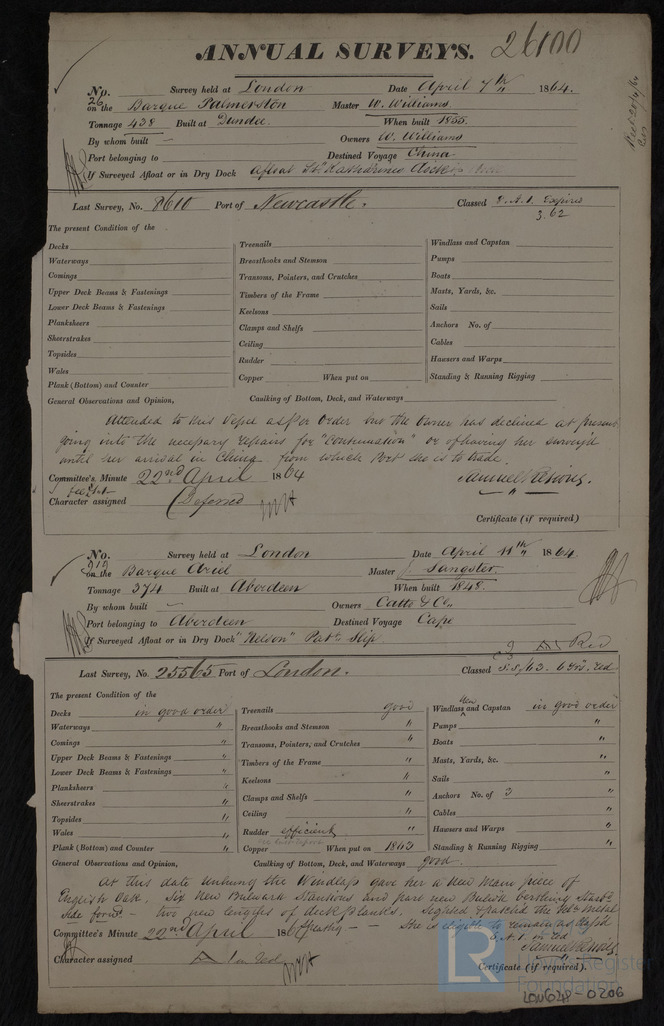 ANNUAL SURVEYS. 26100
No. 26 Survey held at London Date April 7th 1864.
on the Barque Palmerston Master W. Williams
Tonnage 438 Built at Dundee When built 1855.
By whom built — Owners W. Williams
Port belonging to Destined Voyage China
If Surveyed Afloat or in Dry Dock afloat St. Katharines Docks
Last Survey, No. 8610 Port of Newcastle. Classed A.1. Expires
3.62
The present Condition of the
Decks Treenails Windlass and Capstan
Waterways Breasthooks and Stemson Pumps
Comings Transoms, Pointers, and Crutches Boats
Upper Deck Beams & Fastenings Timbers of the Frame Masts, Yards, &c.
Lower Deck Beams & Fastenings Keelsons Sails
Planksheers Clamps and Shelfs Anchors No. of
Sheerstrakes Ceiling Cables
Topsides Rudder Hawsers and Warps
Wales Copper When put on Standing & Running Rigging
Plank (Bottom) and Counter
General Observations and Opinion, Caulking of Bottom, Deck, and Waterways
Attended to this Vessel as per Order but the Owner has declined at present
going into the necessary repairs for "Continuation" or of having her survey'd
until her arrival in China from which Port she is to trade.
Committee's Minute 22nd April 1864
Character assigned (Deferred
Certificate (if required)
No. 212 Survey held at London Date April 11th 1864
on the Barque Ariel Master J. Sangster
Tonnage 374 Built at Aberdeen When built 1848.
By whom built — Owners Catto & Co.
Port belonging to Aberdeen Destined Voyage Cape
If Surveyed Afloat or in Dry Dock "Nelson" Patt. Slip
A Red
Last Survey, No. 25565 Port of London. Classed S.S./63. 6 Yrs. Red
The present Condition of the
Decks in good order Treenails good Windlass New and Capstan in good order
Waterways " Breasthooks and Stemson " Pumps "
Comings " Transoms, Pointers, and Crutches " Boats "
Upper Deck Beams & Fastenings " Timbers of the Frame " Masts, Yards, &c. "
Lower Deck Beams & Fastenings " Keelsons " Sails "
Planksheers " Clamps and Shelfs " Anchors No. of 3 "
Sheerstrakes " Ceiling " Cables "
Topsides " Rudder efficient " Hawsers and Warps "
Wales " Copper When put on 1863 Standing & Running Rigging "
Plank (Bottom) and Counter "
General Observations and Opinion, Caulking of Bottom, Deck, and Waterways good.
At this date unhung the Windlass gave her a New Main piece of
English Oak. Six New Bulwark Stantions and part new Bulwk berthing Starbd.
side forwd. — two new lengths of deck planks.
She is eligible to remain as classd
A.1. in red
Committee's Minute 22nd April 186
Character assigned A in Red
Certificate (if required).
LR Lloyd's Register
Foundation
LON628-0206